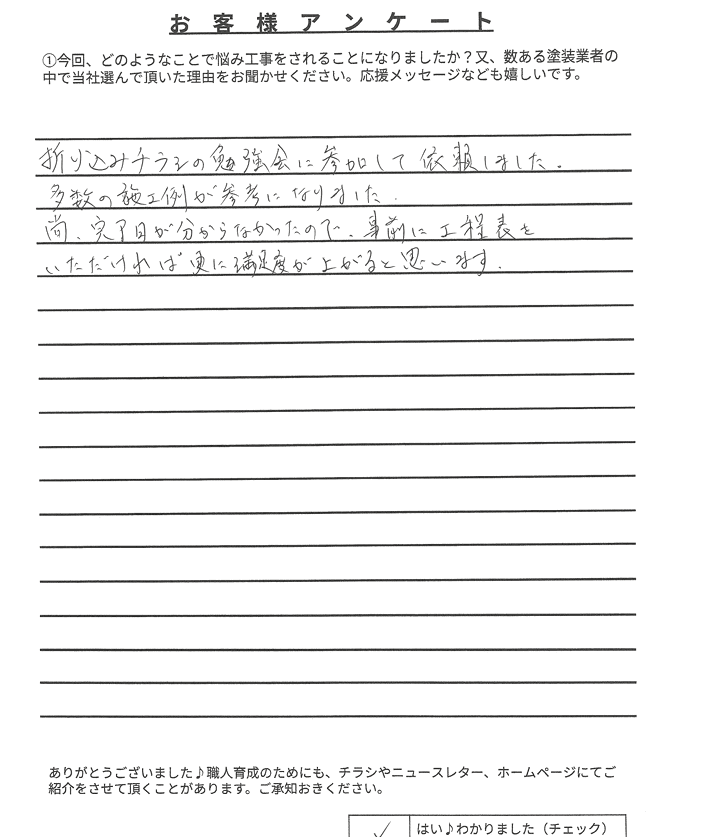 お客様アンケート
①今回、どのようなことで悩み工事をされることになりましたか？又、数ある塗装業者の
中で当社選んで頂いた理由をお聞かせください。応援メッセージなども嬉しいです。
折り込みチラシの勉強会に参加して依頼しました。
多数の施工例が参考になりました。
尚、完了日が分からなかったので、事前に工程表を
いただければ更に満足度が上がると思います。
ありがとうございました♪職人育成のためにも、チラシやニュースレター、ホームページにてご
紹介をさせて頂くことがあります。ご承知おきください。
✓ はい♪わかりました（チェック）